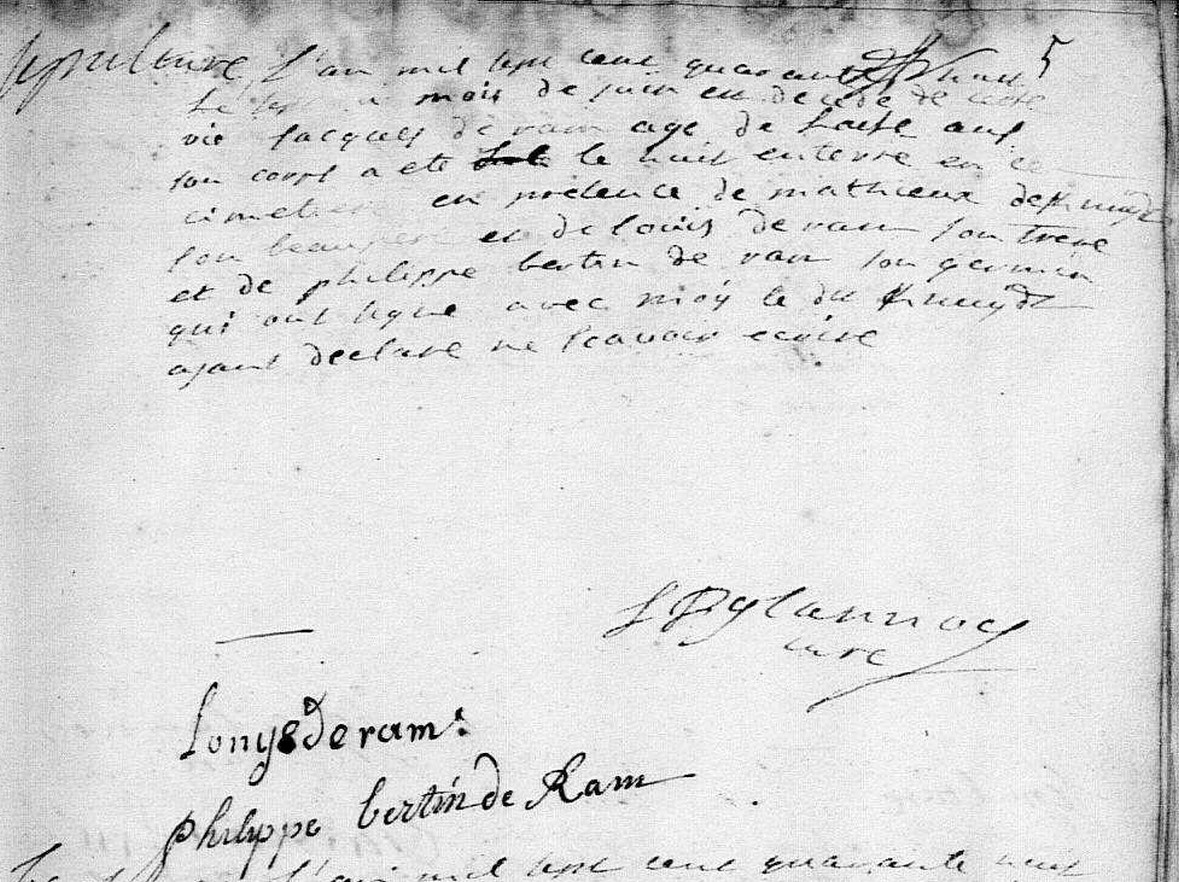 sepulture l'an mil sept cent quarante huit 5
Le sept mois de juin est decede de cette
vie Jacques de ram age de ans
son corps a ete le huit enterre en ce
cimetiere en presence de mathieux
son beaupere et de louis de ram son frere
et de philippe bertin de ram son germin
qui ont signe avec moy le dit
ajant declare ne scavoir ecrire
curé
Louys de ram
philippe bertin de Ram
l'an mil sept cent quarante huit